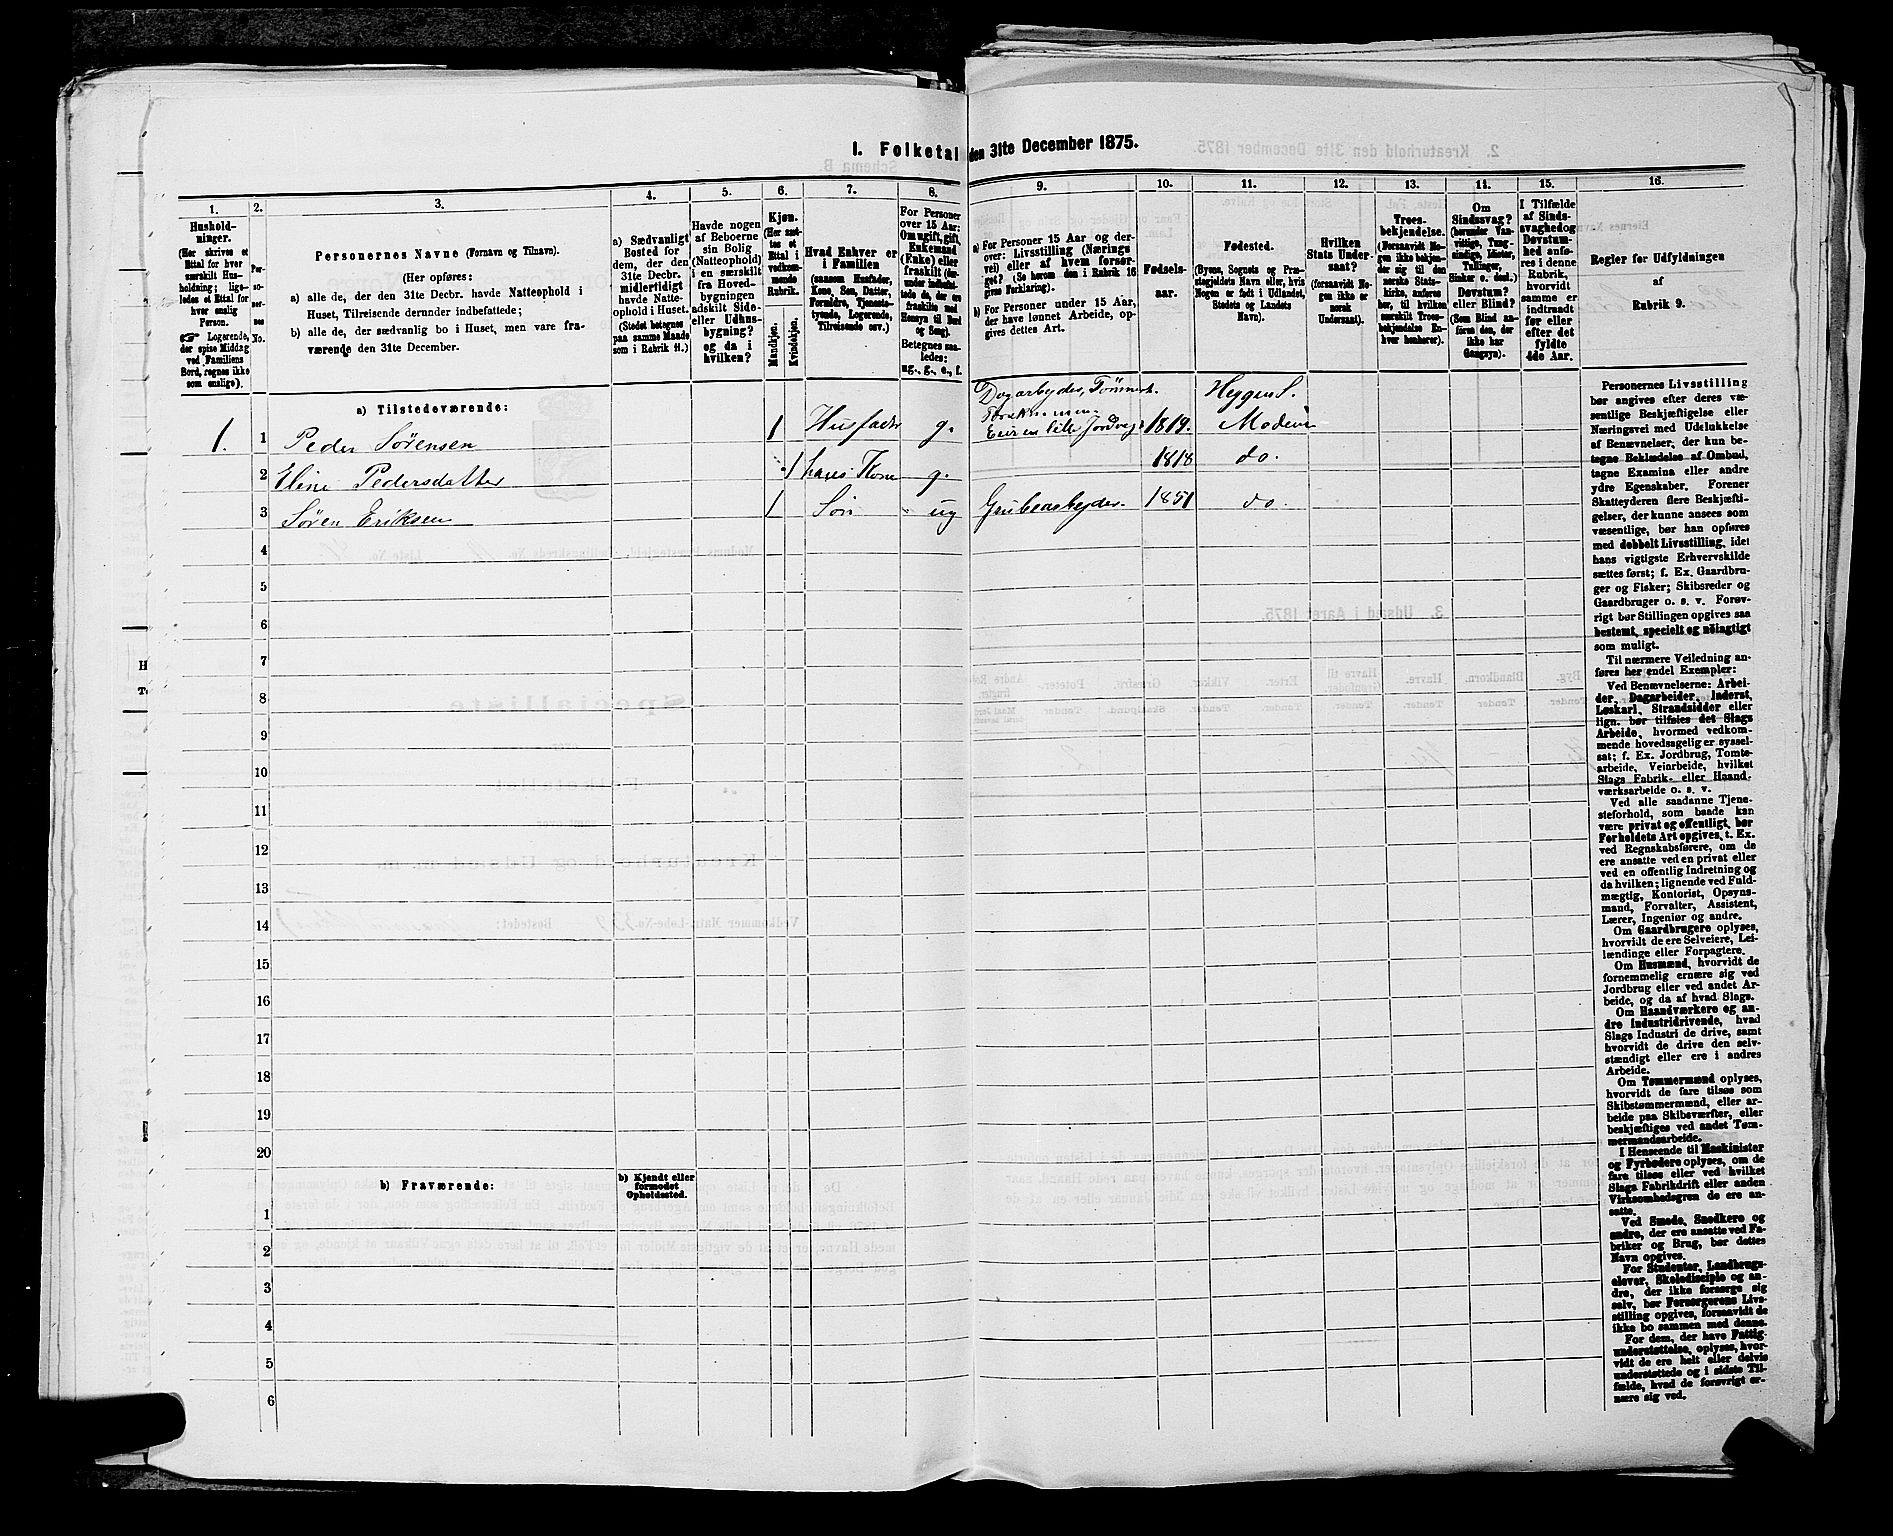 I. Folketal den 31te December 1875.
1. 2. 3. 4. 5. 6. 7. 8. 9. 10. 11. 12. 13. 14. 15. 16.
Hushold-
ninger.
(Her skrives et
Ettal for hver
særskilt Hus-
holdning; lige-
ledes et Ettal for
hver enslig
Person.
Logerende,
der spise Middag
ved Familiens
Bord, regnes ikke
som enslige).
Per-
so-
ner-
nes
No.
Personernes Navne (Fornavn og Tilnavn).
(Her opføres:
a) alle de, der den 31te Decbr. havde Natteophold i
Huset, Tilreisende derunder indbefattede;
b) alle de, der sædvanlig bo i Huset, men vare fra-
værende den 31te December.
a) Sædvanligt
Bosted for
dem, der den
31te Decbr.
midlertidigt
havde Natte-
ophold i Huset.
(Stedet betegnes
paa samme Maade
som i Rubrik 11.)
Havde nogen
af Beboerne
sin Bolig
(Natteophold)
i en særskilt
fra Hoved-
bygningen
adskilt Side-
eller Udhus-
bygning?
og da i
hvilken?
Kjøn.
(Her sæt-
tes et
Ettal i
vedkom-
mende
Rubrik.
Mandkjøn.
Kvindekjøn.
Hvad Enhver er
i Familien
(saasom Husfader,
Kone, Søn, Datter,
Forældre, Tjeneste-
tyende, Logerende,
Tilreisende osv.)
For Personer
over 15 Aar:
Om ugift, gift,
Enkemand
(Enke) eller
fraskilt (der-
under indbefat-
tede de, der ere
fraskilte med
Hensyn til Bord
og Seng).
Betegnes saa-
ledes:
ug., g., e., f.
a) For Personer 15 Aar og der-
over: Livsstilling (Nærings
vei) eller af hvem forsør-
get? (Se herom den i Rubrik 16
givne Forklaring).
b) For Personer under 15 Aar,
der have lønnet Arbeide, op-
gives dettes Art.
Fødsels-
aar.
Fødested.
(Byens, Sognets og Præ-
stegjeldets Navn eller, hvis
Nogen er født i Udlandet,
Stedets og Landets
Navn).
Hvilken
Stats Under-
saat?
(forsaavidt No-
gen ikke er
norsk
Undersaat).
Troes-
bekjendelse.
(Forsaavidt No-
gen ikke bekjen-
der sig til den
norske Stats-
kirke, anføres
her, til hvilken
særskilt Troes-
bekjendelse En-
hver henhører).
Om
Sindssvag?
(herunder Van-
vittige, Tung-
sindige, Idioter,
Tullinger,
Hinker o. desl.)
Døvstum?
eller Blind?
(Som Blind an-
føres den, der
ikke har
Gangsyn).
I Tilfælde
af Sinds-
svaghed og
Døvstum-
hed anfø-
res i denne
Rubrik,
hvorvidt
samme er
indtraadt
før eller
efter det
fyldte
4de Aar.
Regler for Udfyldningen
af
Rubrik 9.
a) Tilstedeværende:
Dagarbeyder, Heggen S.
1. 1 Peder Sørensen 1 Husfader g. Eier en lille Jordvei 1819. Modum
2 Eline Pedersdatter 1 hans Kone g. 1818 do.
3 Søren Eriksen 1 Søn ug Grubearbeyder. 1851 do.
4
5
6
7
8
9
10
11
12
13
14
15
16
17
18
19
20
b) Fraværende:
b) Kjendt eller
formodet
Opholdssted.
1
2
3
4
5
6
Personernes Livsstilling
bør angives efter deres væ-
sentlige Beskjæftigelse eller
Næringsvei med Udelukkelse
af Benævnelser, der kun be-
tegne Beklædelse af Ombud,
tagne Examina eller andre
ydre Egenskaber. Forener
Skatteyderen flere Beskjæfti-
gelser, der kunne ansees som
væsentlige, bør han opføres
med dobbelt Livsstilling, idet
hans vigtigste Erhvervskilde
sættes først; f. Ex. Gaardbru-
ger og Fisker; Skibsreder og
Gaardbruger o. s. v. Forøv-
rigt bør Stillingen opgives saa
bestemt, specielt og nöiagtigt
som muligt.
Til nærmere Veiledning an-
føres her endel Exempler:
Ved Benævnelserne: Arbei-
der, Dagarbeider, Inderst,
Løskarl, Strandsidder eller
lign. bør tilføies det Slags
Arbeide, hvormed vedkom-
mende hovedsagelig er syssel-
sat; f. Ex. Jordbrug, Tomte-
arbeide, Veiarbeide, hvilket
Slags Fabrik- eller Haand-
værksarbeide o. s. v.
Ved alle saadanne Tjene-
steforhold, som baade kan
være privat og offentligt, bør
Forholdets Art opgives, t. Ex.
ved Regnskabsførere, om de
ere ansatte ved en privat eller
ved en offentlig Indretning og
da hvilken; lignende ved Fuld-
mægtig, Kontorist, Opsyns-
mand, Forvalter, Assistent,
Lærer, Ingeniør og andre.
Om Gaardbrugere oplyses,
hvorvidt de ere Selveiere, Lei-
lændinge eller Forpagtere.
Om Husmænd, hvorvidt de
fornemmelig ernære sig ved
Jordbrug eller ved andet Ar-
beide, og da af hvad Slags.
Om Haandværkere og an-
dre Industridrivende, hvad
Slags Industri de drive, samt
hvorvidt de drive den selv-
stændigt eller ere i andres
Arbeide.
Om Tømmermænd oplyses,
hvorvidt de fare tilsøs som
Skibstømmermænd, eller ar-
beide paa Skibsværfter, eller
beskjæftiges ved andet Tøm-
mermandsarbeide.
I Henseende til Maskinister
og Fyrbødere oplyses, om de
fare tilsøs eller ved hvilket
Slags Fabrikdrift eller anden
Virksomhedsgren de ere an-
satte.
Ved Smede, Snedkere og
andre, der ere ansatte ved Fa-
briker og Brug, bør dettes
Navn opgives.
For Studenter, Landbrugs-
elever, Skoledisciple og an-
dre, der ikke forsørge sig
selv, bør Forsørgerens Livs-
stilling opgives, forsaavidt de
ikke bo sammen med denne.
For dem, der have Fattig-
understøttelse, oplyses, hvor-
vidt de ere helt eller delvis
understøttede og i sidste Til-
fælde, hvad de forøvrigt er-
nære sig ved.